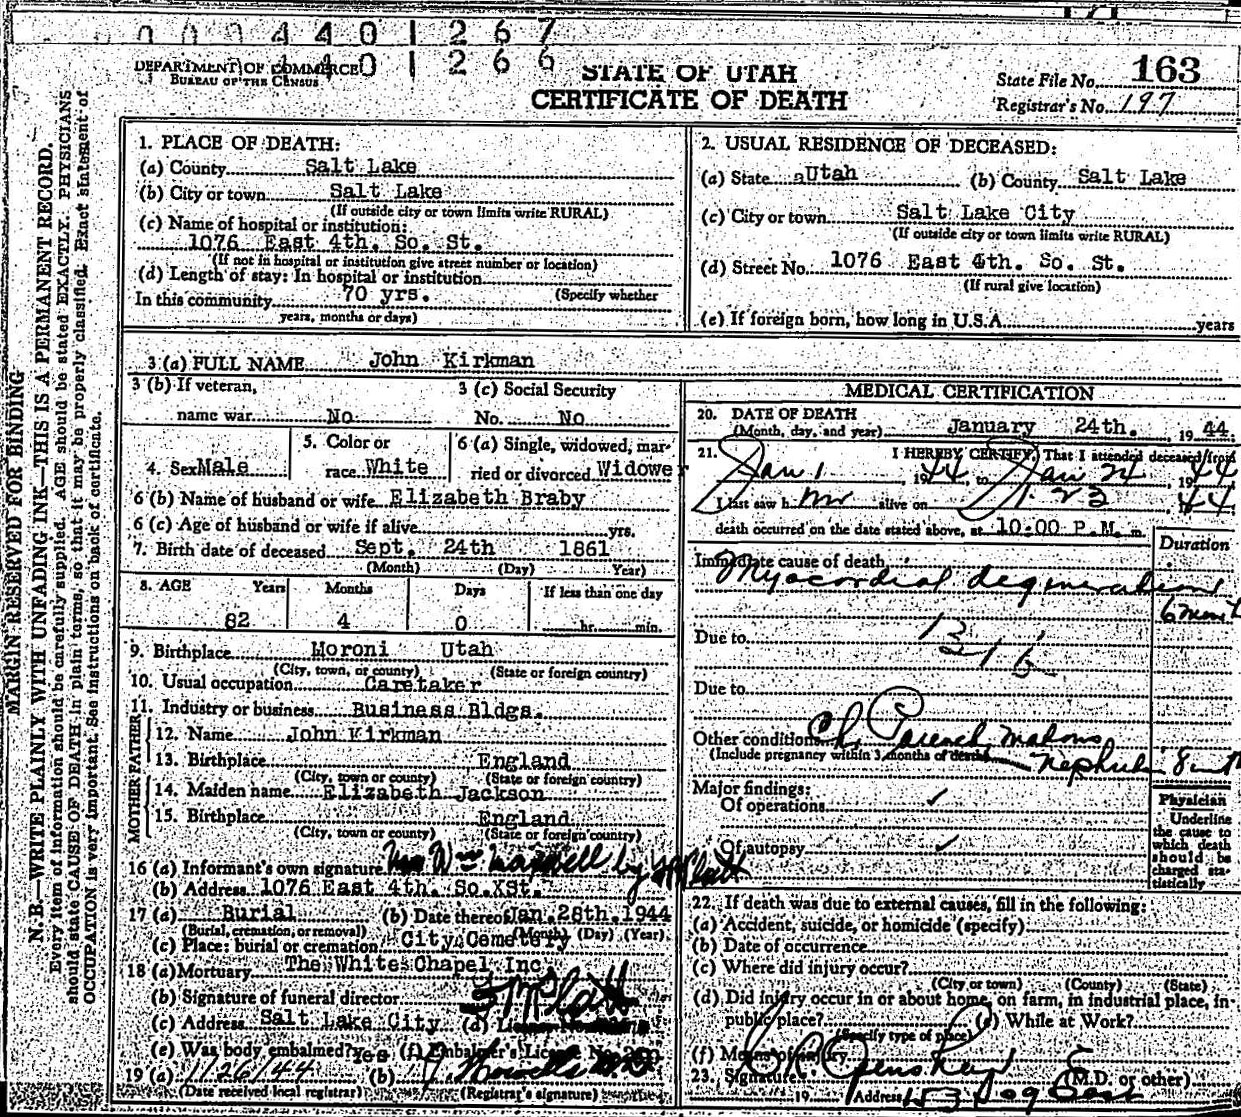 0 0 0 4 4 0 1 2 6 7
DEPARTMENT OF COMMERCE 4 4 0 1 2 6 6
BUREAU OF THE CENSUS
STATE OF UTAH
CERTIFICATE OF DEATH
State File No. 163
Registrar's No. 197
MARGIN RESERVED FOR BINDING
N. B.—WRITE PLAINLY WITH UNFADING INK—THIS IS A PERMANENT RECORD.
Every item of information should be carefully supplied. AGE should be stated EXACTLY. PHYSICIANS
should state CAUSE OF DEATH in plain terms, so that it may be properly classified. Exact statement of
OCCUPATION is very important. See instructions on back of certificate.
1. PLACE OF DEATH:
(a) County Salt Lake
(b) City or town Salt Lake
(If outside city or town limits write RURAL)
(c) Name of hospital or institution:
1076 East 4th. So. St.
(If not in hospital or institution give street number or location)
(d) Length of stay: In hospital or institution
In this community 70 yrs. (Specify whether
years, months or days)
2. USUAL RESIDENCE OF DECEASED:
(a) State aUtah (b) County Salt Lake
(c) City or town Salt Lake City
(If outside city or town limits write RURAL)
(d) Street No. 1076 East 4th. So. St.
(If rural give location)
(e) If foreign born, how long in U.S.A. years
3 (a) FULL NAME John Kirkman
3 (b) If veteran, 3 (c) Social Security
name war No No. No
4. Sex Male 5. Color or race White 6 (a) Single, widowed, married or divorced Widower
6 (b) Name of husband or wife Elizabeth Braby
6 (c) Age of husband or wife if alive yrs.
7. Birth date of deceased Sept. 24th 1861
(Month) (Day) Year)
8. AGE Years Months Days If less than one day
82 4 0 hr. min.
9. Birthplace Moroni Utah
(City, town, or county) (State or foreign country)
10. Usual occupation Caretaker
11. Industry or business Business Bldgs.
FATHER
12. Name John Kirkman
13. Birthplace England
(City, town or county) (State or foreign country)
MOTHER
14. Maiden name Elizabeth Jackson
15. Birthplace England
(City, town or county) (State or foreign country)
16 (a) Informant's own signature Mrs Wm Maxwell by
(b) Address 1076 East 4th. So.XSt.
17 (a) Burial (b) Date thereof Jan. 28th. 1944
(Burial, cremation, or removal) (Month) (Day) (Year)
(c) Place: burial or cremation City Cemetery
18 (a) Mortuary The White Chapel Inc
(b) Signature of funeral director
(c) Address Salt Lake City (d)
(e) Was body embalmed? Yes (f) Embalmer's License No.
19 (a) 1/26/44 (b)
(Date received local registrar) (Registrar's signature)
MEDICAL CERTIFICATION
20. DATE OF DEATH
(Month, day, and year) January 24th. 19 44
21. I HEREBY CERTIFY, That I attended deceased from
Jan 1, 19 44, to Jan 24, 19 44
I last saw h im alive on 1 23 44
death occurred on the date stated above, at 10:00 P.M. m.
Duration
Immediate cause of death
Myocardial degeneration
6 month
Due to
Due to
Other conditions Ch Parenchmatous
(Include pregnancy within 3 months of death) nephritis 8 mth
Major findings:
Of operations ✓
Of autopsy ✓
Physician
Underline
the cause to
which death
should be
charged sta-
tistically
22. If death was due to external causes, fill in the following:
(a) Accident, suicide, or homicide (specify)
(b) Date of occurrence
(c) Where did injury occur?
(City or town) (County) (State)
(d) Did injury occur in or about home, on farm, in industrial place, in-
public place? (e) While at Work?
(Specify type of place)
(f) Means of injury
23. Signature (M.D. or other)
19 Address